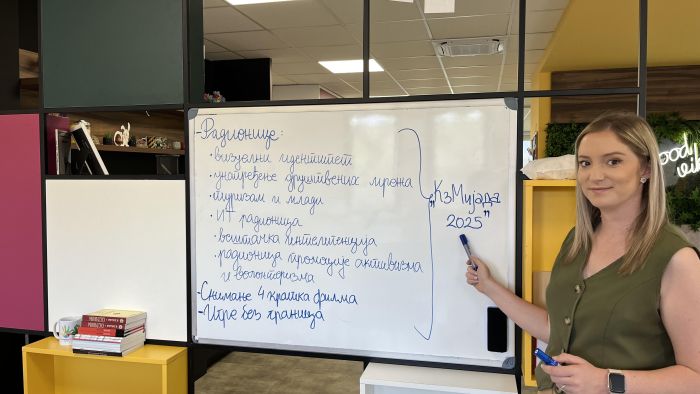 -Радионице:
• визуелни идентитет
• унапређење друштвених мрежа
• туризам и млади
• ИТ радионица
• вештачка интелигенција
• радионица промоције активизма
и волонтеризма
-Снимање 4 кратка филма
-Игре без граница
"КзМијада
2025"
good